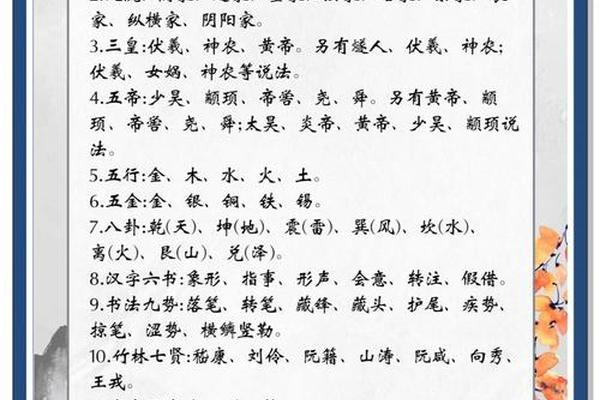 家、纵横家、阴阳家。
3.三皇:伏羲、神农、黄帝。另有燧人、伏羲、神农;
伏羲、女娲、神农等说法。
4.五帝:少昊、颛顼、帝喾、尧、舜。另有黄帝、颛
顼、帝喾、尧、舜;太昊、炎帝、黄帝、少昊、颛顼说
法。
5.五行:金、木、水、火、土。
6.五金:金、银、铜、铁、锡。
7.八卦:乾(天)、坤(地)、震(雷)、巽(风)、坎(水)、
离(火)、艮(山)、兑(泽)。
8.汉字六书:象形、指事、形声、会意、转注、假借。
9.书法九势:落笔、转笔、藏锋、藏头、护尾、疾势、
掠笔、涩势、横鳞竖勒。
10.竹林七贤:嵇康、刘伶、阮籍、山涛、阮咸、向秀、
王戎。